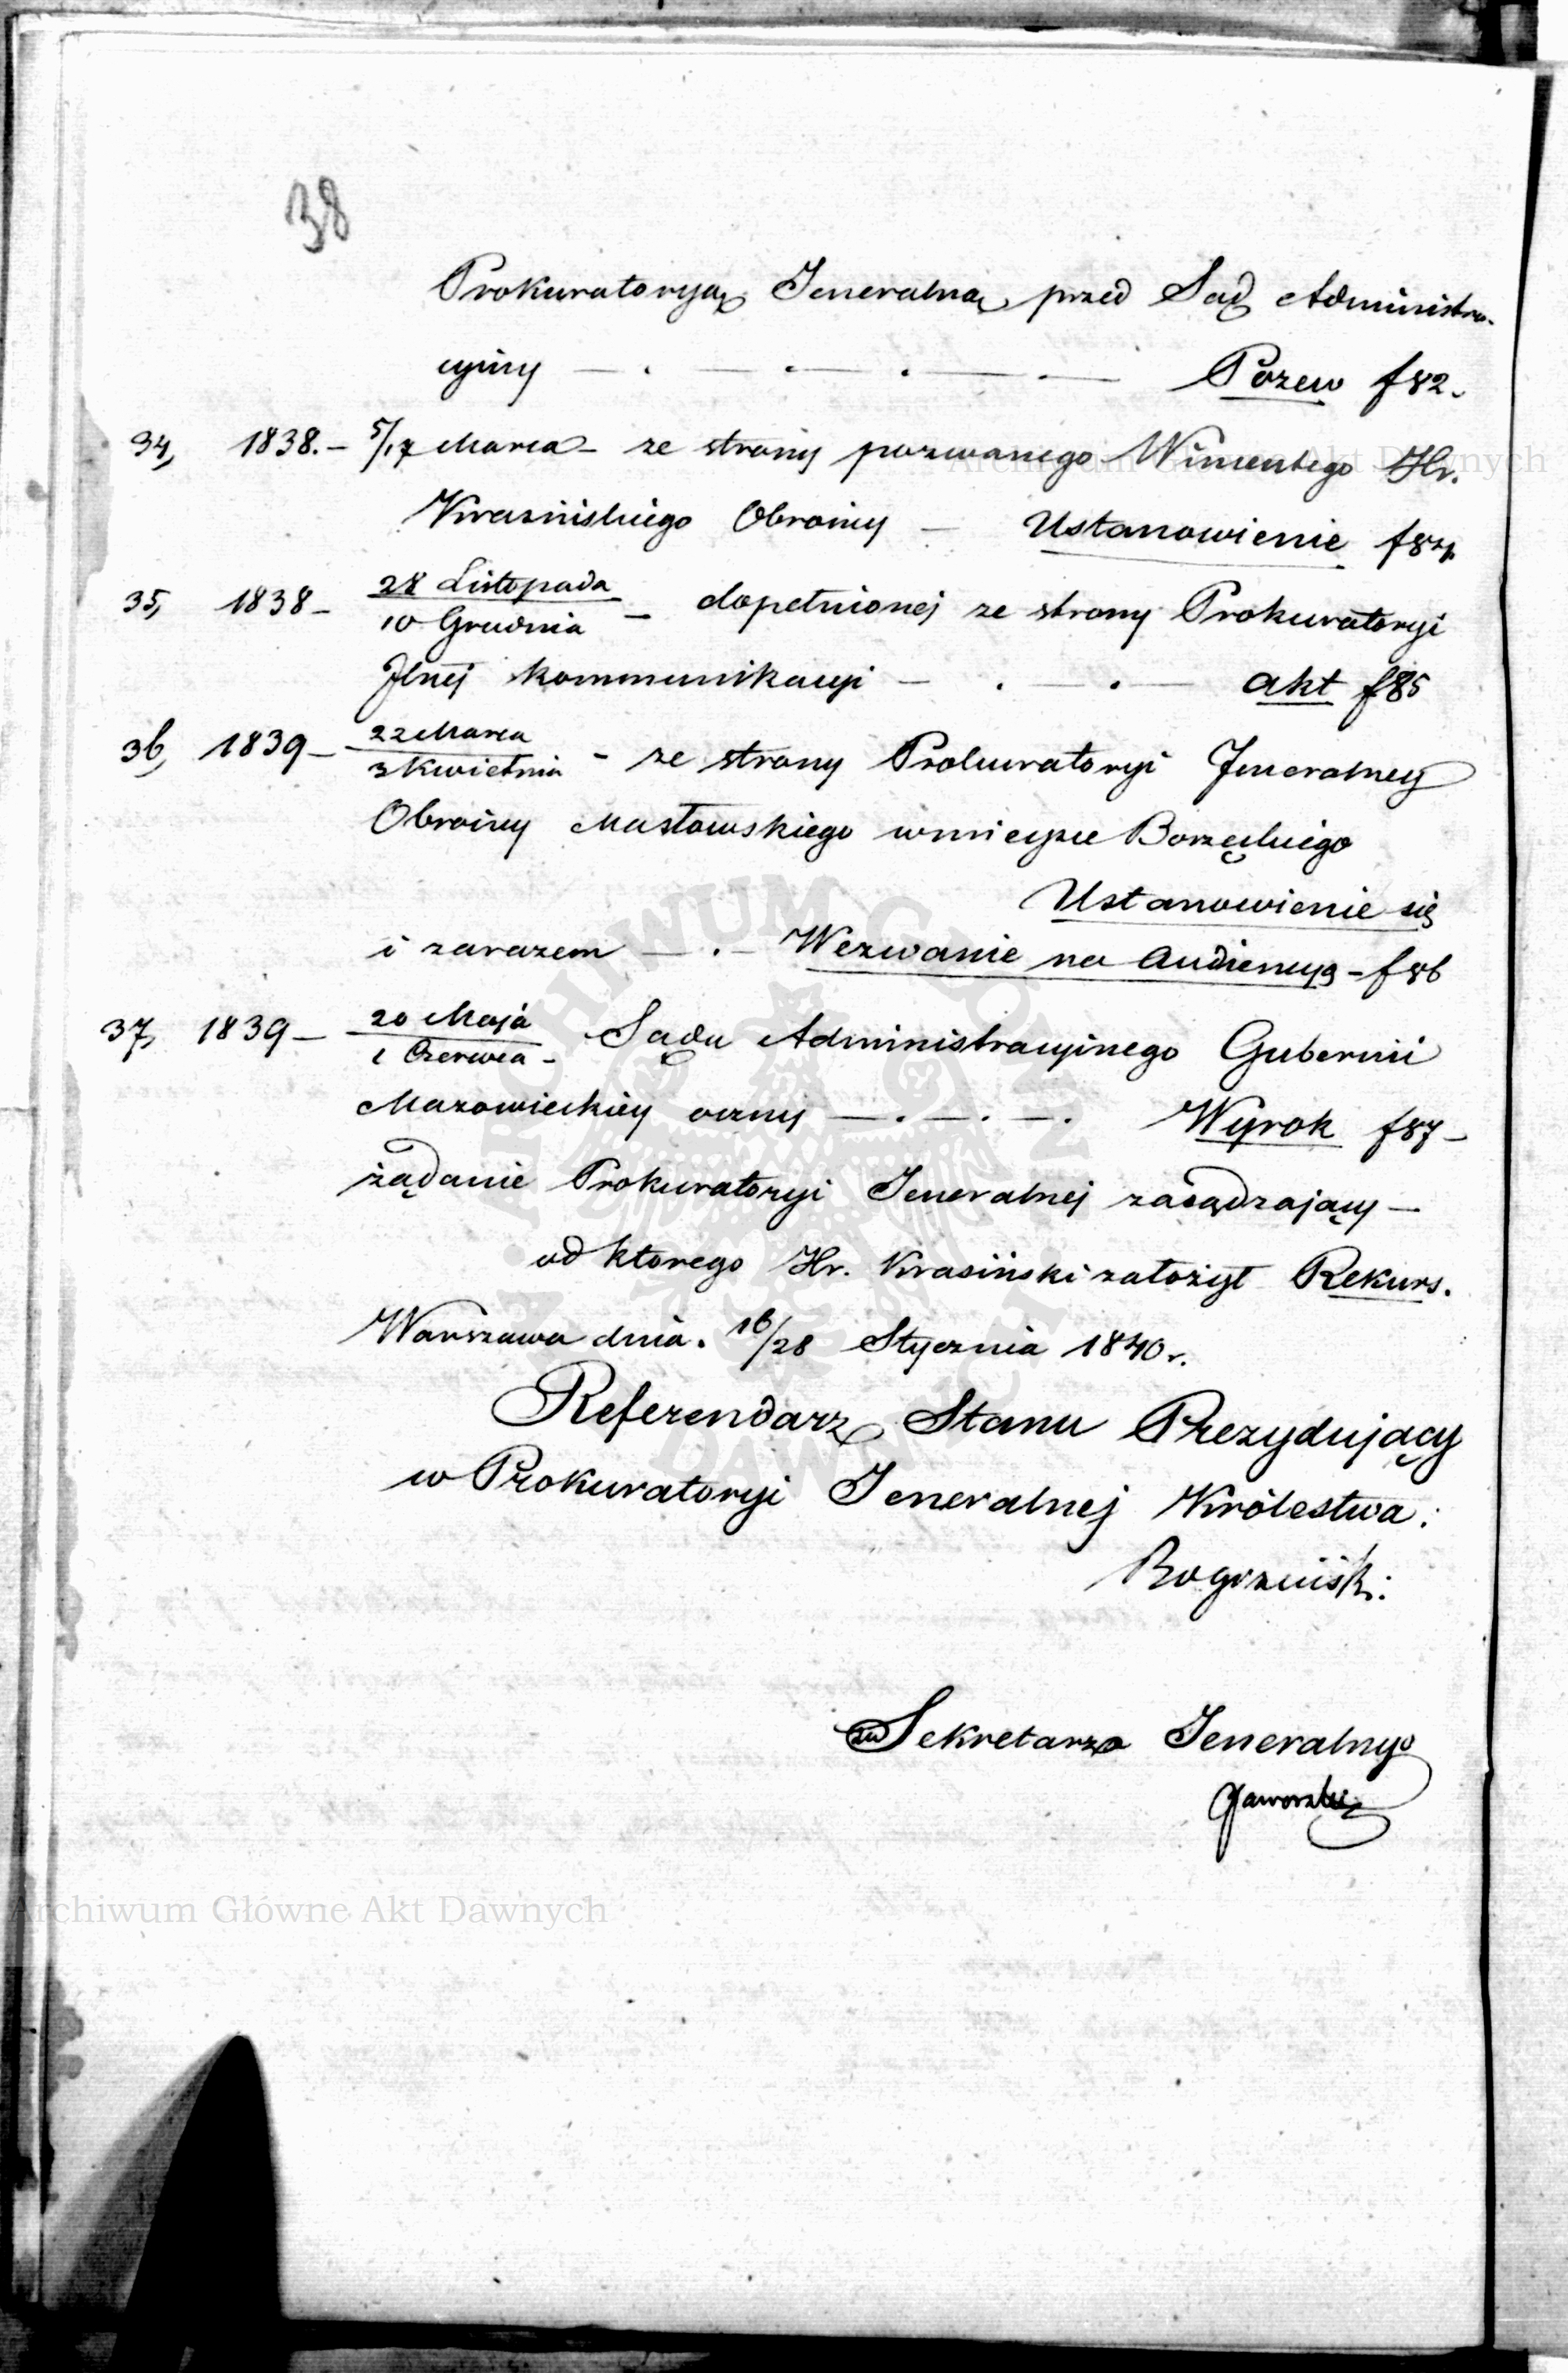 38
Prokuratoryą Jeneralną przed Sąd Administra-
cyiny — . — . — . — — Pozew f 82.
34, 1838. – 5/17 Marca – ze strony pozwanego Wincentego Hr.
Krasińskiego Obrońcy — Ustanowienie f 84.
35, 1838 – 28 Listopada
10 Grudnia – dopełnionej ze strony Prokuratoryi
Jlnej kommunikacyi — . — . — akt f 85
36, 1839 – 22 Marca
3 Kwietnia – ze strony Prokuratoryi Jeneralney
Obrońcy Masłowskiego wmieysce Borzęckiego
Ustanowienie się
i zarazem — . – Wezwanie na Audiencyą – f 86
37, 1839 – 20 Maja
1 Czerwca – Sądu Administracyinego Gubernii
Mazowieckiey oczny — . — . — . Wyrok f 87 –
żądanie Prokuratoryi Jeneralnej zasądzający —
od ktorego Hr. Krasiński założył Rekurs.
Warszawa dnia. 16/28 Stycznia 1840 r.
Referendarz Stanu Prezydujący
w Prokuratoryi Jeneralnej Królestwa:
zw Sekretarza Jeneralnego
Jaworski
Archiwum Główne Akt Dawnych
Archiwum Główne Akt Dawnych
ARCHIWUM GŁÓWNE AKT DAWNYCH